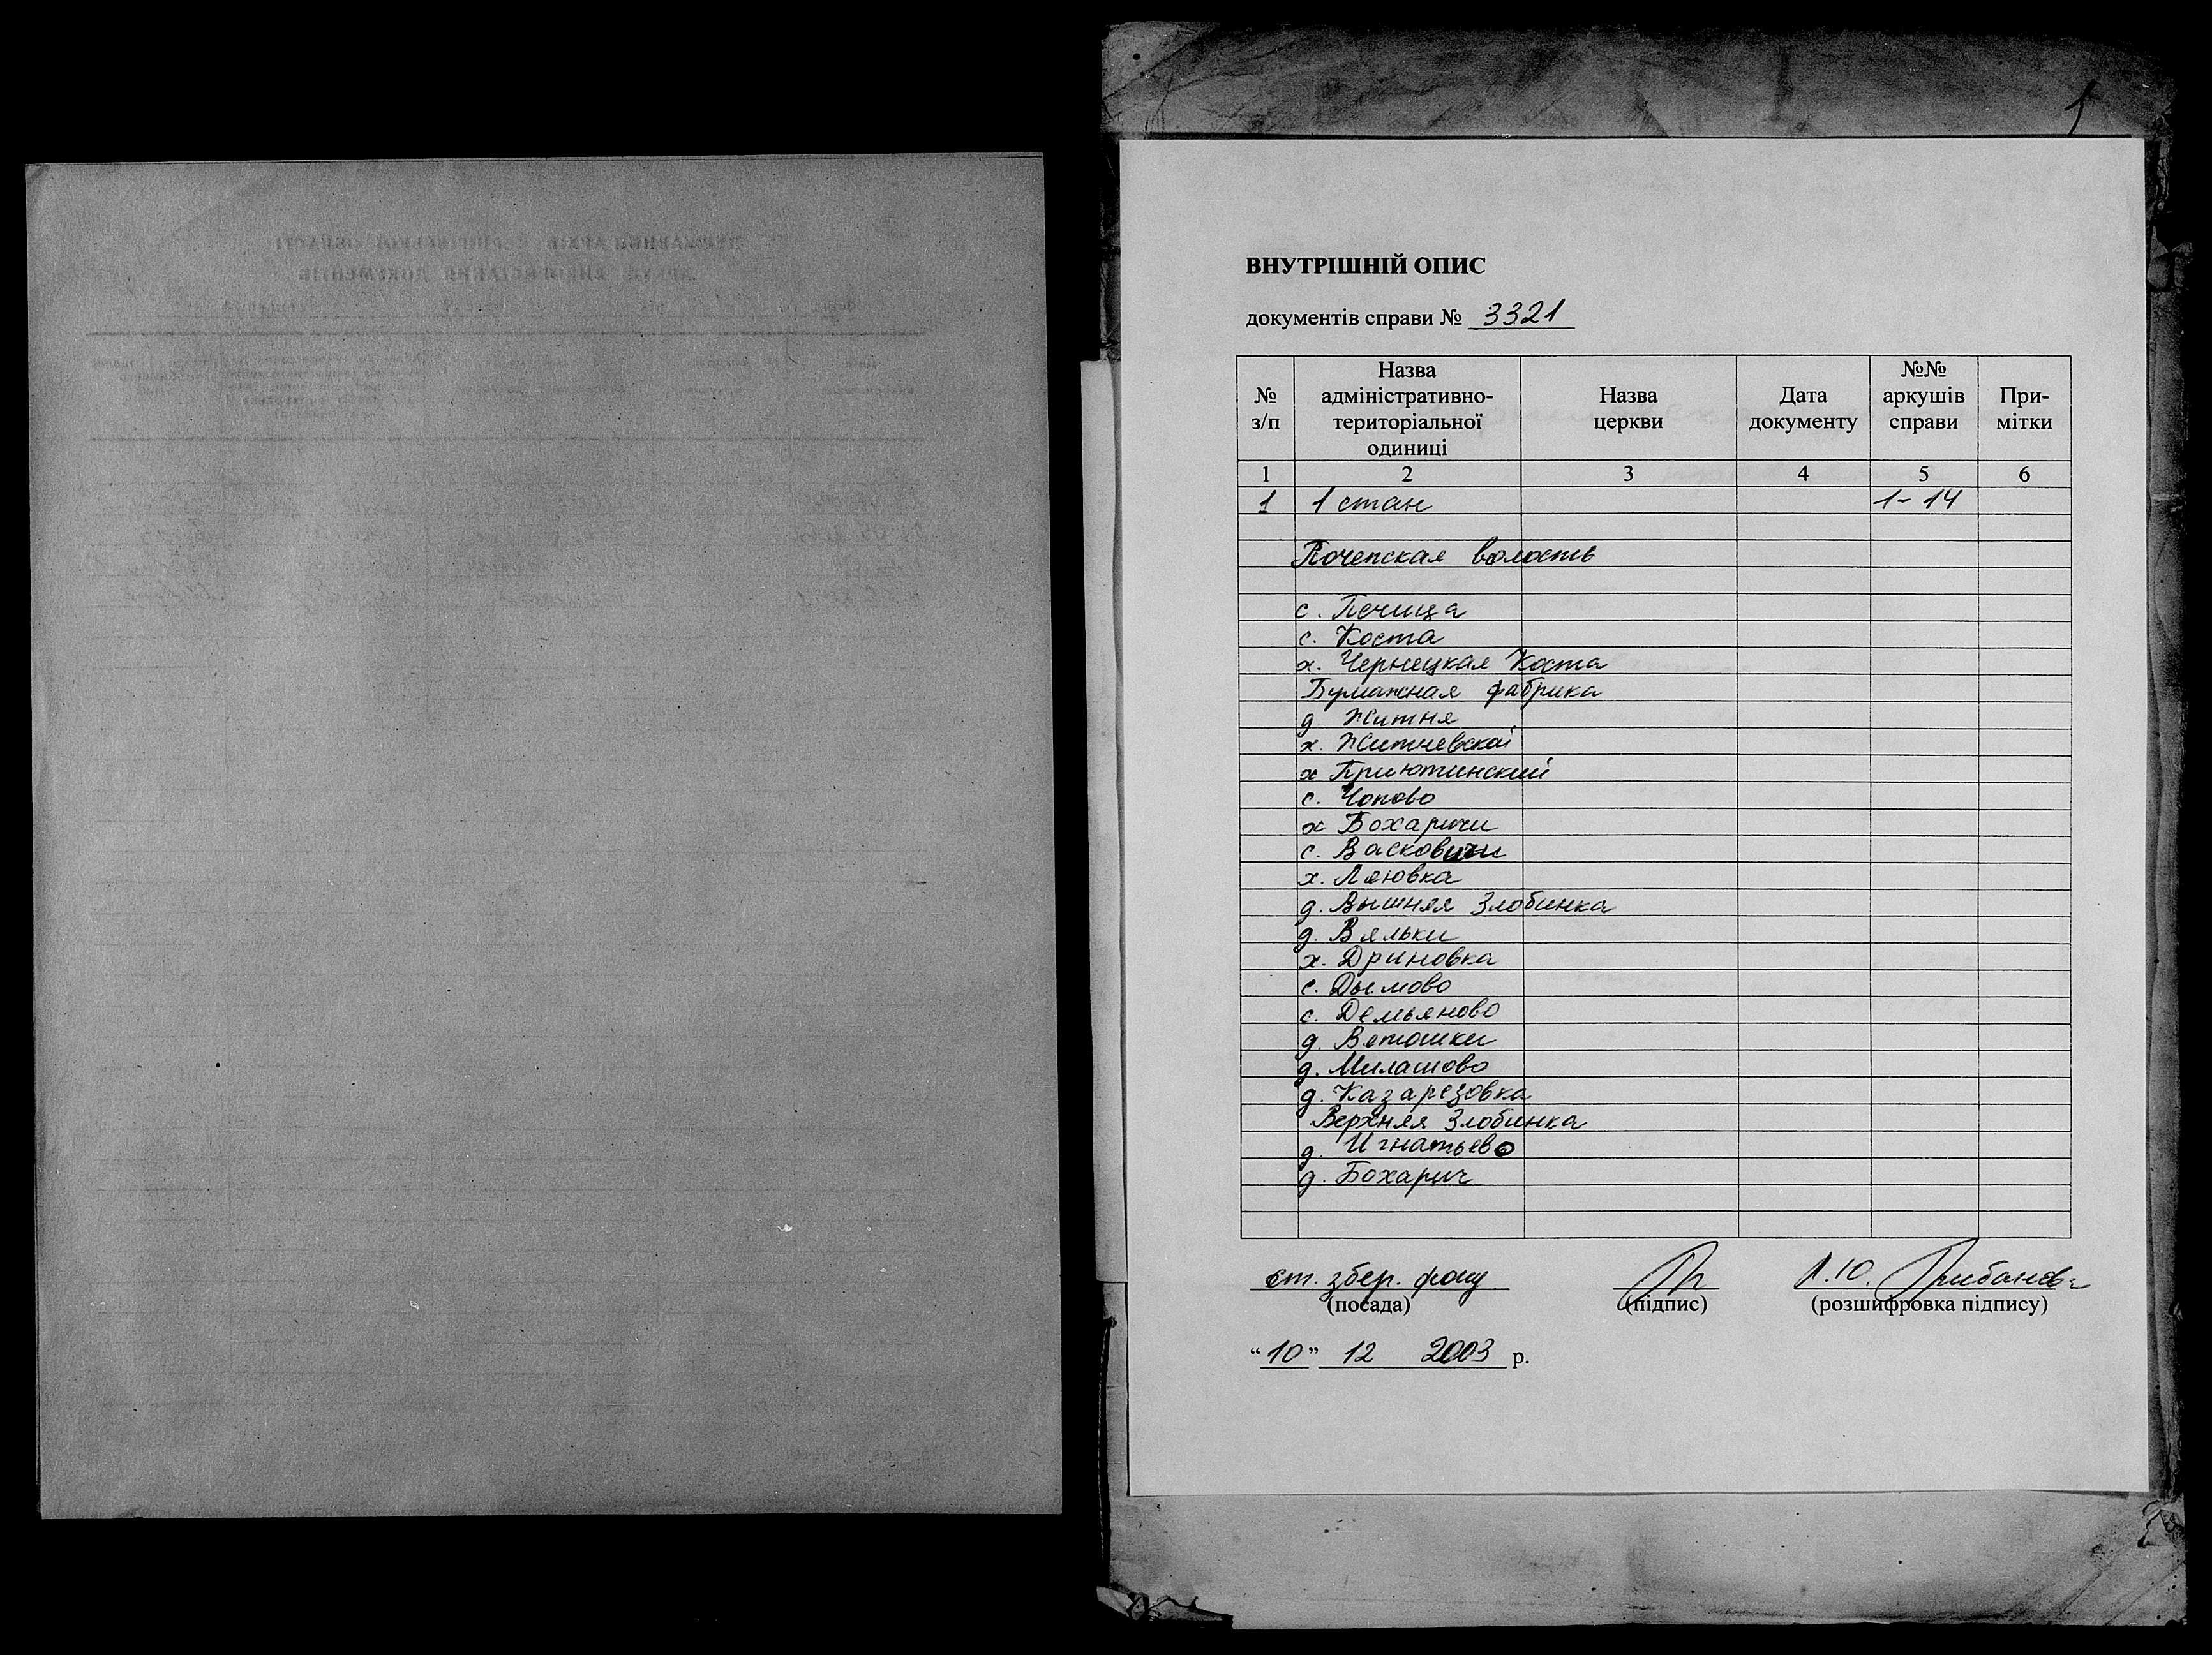 1
ВНУТРІШНІЙ ОПИС
документів справи № 3321
№ з/п | Назва адміністративно-територіальної одиниці | Назва церкви | Дата документу | №№ аркушів справи | При-мітки
1 | 2 | 3 | 4 | 5 | 6
1 1 стан 1-14
Почепская волость
с. Печища
с. Коста
х. Чернецкая Коста
Бумажная фабрика
д Житня
х. Житневской
х Приютинский
с. Чопово
х Бохаричи
с. Васковичи
х.
д. Вышняя Злобинка
д. Вяльки
х. Дриновка
с. Дымово
с. Демьяново
д. Ветошки
д. Милашово
д. Казарезовка
Верхняя Злобинка
д. Игнатьево
д. Бохарич
ст. збер. фонду
(посада) (підпис) (розшифровка підпису)
“10” 12 2003 р.